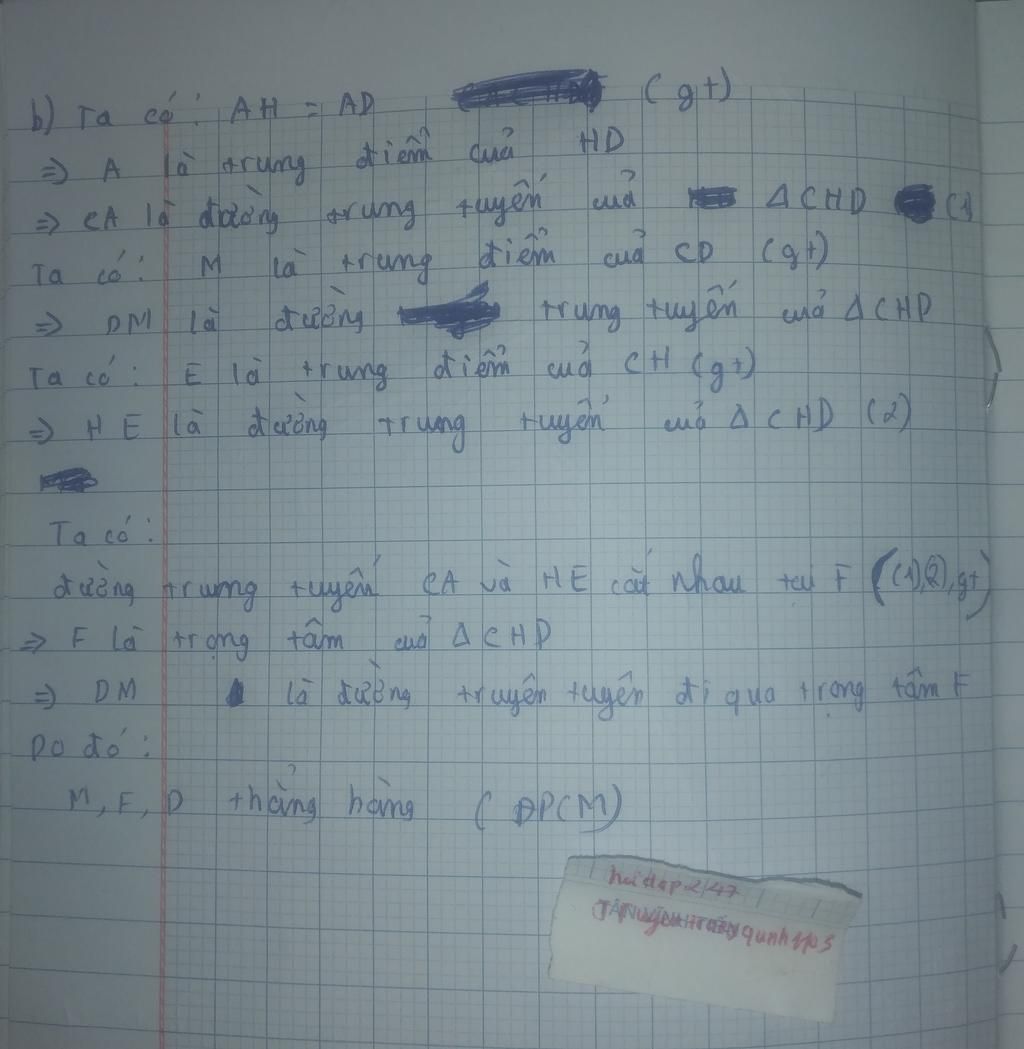 b) Ta có: AH = AD (gt)
=> A là trung điểm của HD
=> CA là đường trung tuyến của Δ CHD (1)
Ta có: M là trung điểm của CD (gt)
=> DM là đường trung tuyến của Δ CHD
Ta có: E là trung điểm của CH (gt)
=> HE là đường trung tuyến của Δ CHD (2)
Ta có:
đường trung tuyến CA và HE cắt nhau tại F ((1),(2),gt)
=> F là trọng tâm của Δ CHD
=> DM là đường truyên tuyên đi qua trọng tâm F
Do đó:
M, F, D thẳng hàng (ĐPCM)
hoidap247